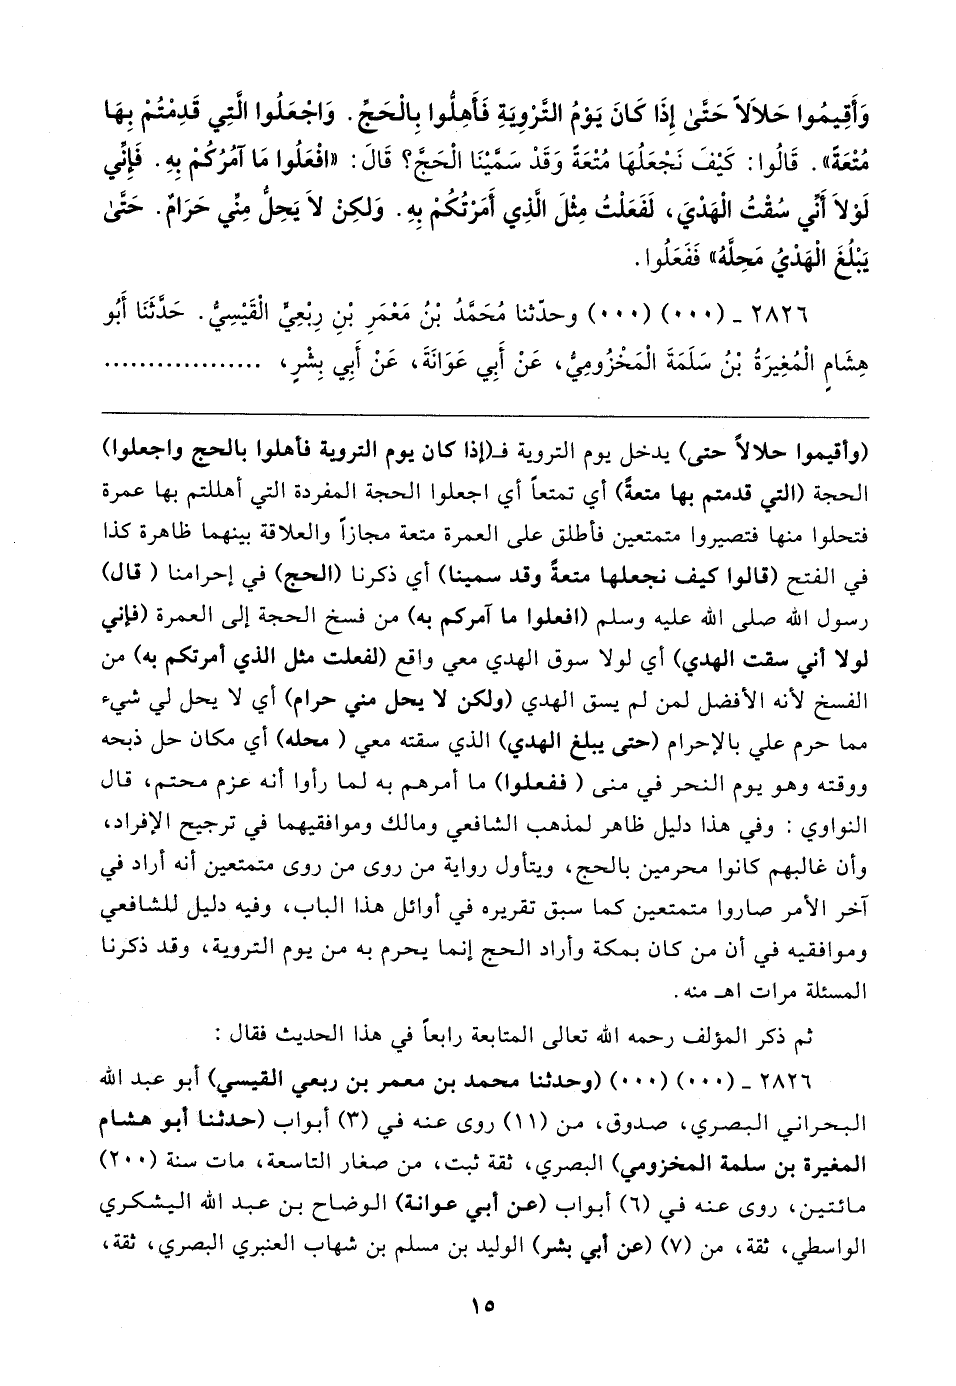 وَأَقِيمُوا حَلَالاً حَتَّىٰ إِذَا كَانَ يَوْمُ التَّرْوِيَةِ فَأَهِلُّوا بِالْحَجِّ. وَاجْعَلُوا الَّتِي قَدِمْتُمْ بِهَا
مُتْعَةً». قَالُوا: كَيْفَ نَجْعَلُهَا مُتْعَةً وَقَدْ سَمَّيْنَا الْحَجَّ؟ قَالَ: «افْعَلُوا مَا آمُرُكُمْ بِهِ. فَإِنِّي
لَوْلاَ أَنِّي سُقْتُ الْهَدْيَ، لَفَعَلْتُ مِثْلَ الَّذِي أَمَرْتُكُمْ بِهِ. وَلكِنْ لاَ يَحِلُّ مِنِّي حَرَامٌ. حَتَّىٰ
يَبْلُغَ الْهَدْيُ مَحِلَّهُ» فَفَعَلُوا.
٢٨٢٦ - (٠٠٠) (٠٠٠) وحدّثنا مُحَمَّدُ بْنُ مَعْمَرِ بْنِ رِبْعِيٍّ الْقَيْسِيُّ. حَدَّثَنَا أَبُو
هِشَامٍ الْمُغِيرَةُ بْنُ سَلَمَةَ الْمَخْزُومِيُّ، عَنْ أَبِي عَوَانَةَ، عَنْ أَبِي بِشْرٍ، ..................
(وأقيموا حلالاً حتى) يدخل يوم التروية فـ(إذا كان يوم التروية فأهلوا بالحج واجعلوا)
الحجة (التي قدمتم بها متعةً) أي تمتعاً أي اجعلوا الحجة المفردة التي أهللتم بها عمرة
فتحلوا منها فتصيروا متمتعين فأطلق على العمرة متعة مجازاً والعلاقة بينهما ظاهرة كذا
في الفتح (قالوا كيف نجعلها متعةً وقد سمينا) أي ذكرنا (الحج) في إحرامنا ( قال)
رسول الله صلى الله عليه وسلم (افعلوا ما آمركم به) من فسخ الحجة إلى العمرة (فإني
لولا أني سقت الهدي) أي لولا سوق الهدي معي واقع (لفعلت مثل الذي أمرتكم به) من
الفسخ لأنه الأفضل لمن لم يسق الهدي (ولكن لا يحل مني حرام) أي لا يحل لي شيء
مما حرم علي بالإحرام (حتى يبلغ الهدي) الذي سقته معي ( محله) أي مكان حل ذبحه
ووقته وهو يوم النحر في منى ( ففعلوا) ما أمرهم به لما رأوا أنه عزم محتم، قال
النواوي : وفي هذا دليل ظاهر لمذهب الشافعي ومالك وموافقيهما في ترجيح الإفراد،
وأن غالبهم كانوا محرمين بالحج، ويتأول رواية من روى من روى متمتعين أنه أراد في
آخر الأمر صاروا متمتعين كما سبق تقريره في أوائل هذا الباب، وفيه دليل للشافعي
وموافقيه في أن من كان بمكة وأراد الحج إنما يحرم به من يوم التروية، وقد ذكرنا
المسئلة مرات اهـ منه.
ثم ذكر المؤلف رحمه الله تعالى المتابعة رابعاً في هذا الحديث فقال :
٢٨٢٦ - (٠٠٠) (٠٠٠) (وحدثنا محمد بن معمر بن ربعي القيسي) أبو عبد الله
البحراني البصري، صدوق، من (١١) روى عنه في (٣) أبواب (حدثنا أبو هشام
المغيرة بن سلمة المخزومي) البصري، ثقة ثبت، من صغار التاسعة، مات سنة (٢٠٠)
مائتين، روى عنه في (٦) أبواب (عن أبي عوانة) الوضاح بن عبد الله اليشكري
الواسطي، ثقة، من (٧) (عن أبي بشر) الوليد بن مسلم بن شهاب العنبري البصري، ثقة،
١٥